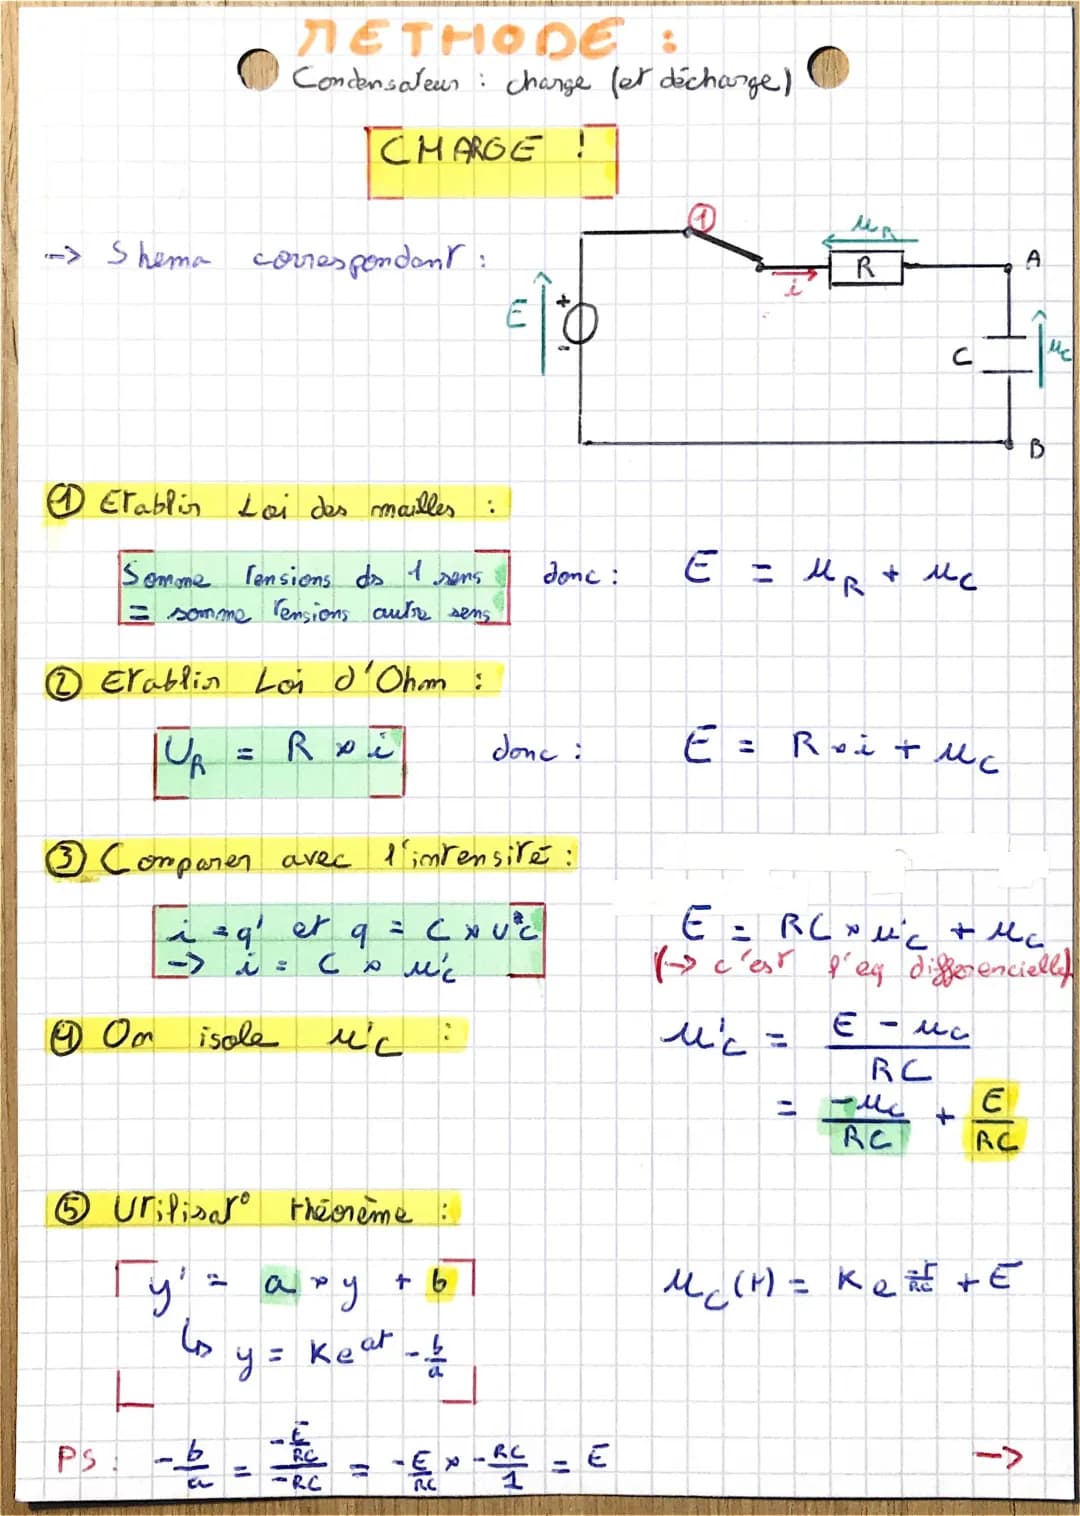 METHODE :
Condensateur : charge (et décharge)
CHARGE !
-> Shema correspondant :
1
uR
R
A
i
E
+
-
C
uC
B
① Etablir Loi des mailles :
Somme Tensions ds 1 sens
= somme Tensions autre sens
donc : E = uR + uC
② Etablir Loi d'Ohm :
UR = R × i donc : E = R × i + uC
③ Comparer avec l'intensité :
i = q' et q = C × uC
-> i = C × u'C
E = RC × u'C + uC
(-> c'est l'eq differencielle)
④ On isole u'C : u'C = (E - uC)/RC
= -uC/RC + E/RC
⑤ Utilisat° théorème :
y' = a × y + b
↳ y = Ke^at - b/a
uC(t) = Ke^(-t/RC) + E
PS : -b/a = (-E/RC)/(-RC) = -E/RC × -RC/1 = E
->